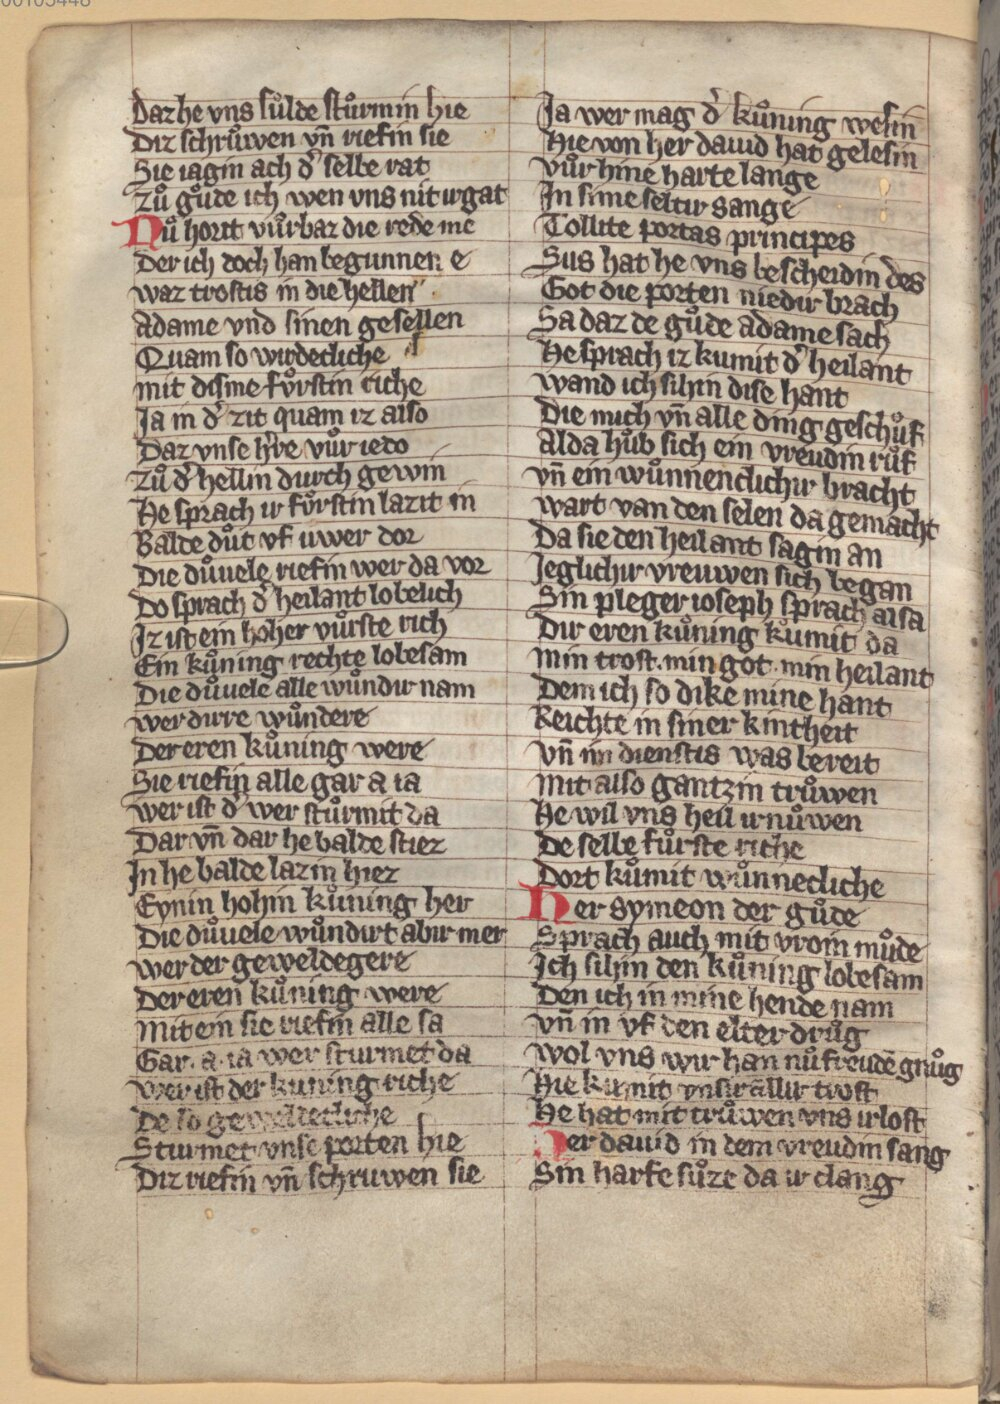 00105448
Daz he vns suͦlde stuͦrmin hie
Diz schruͦwen vn̄ riefin sie
Sie iagin ach d' selbe rat
Zuͦ guͦde ich wen vns nit irgat
Nuͦ horit vuͦrbaz die rede me
Der ich doch han begunnen e
waz trostis in die hellen
Adame vnd sinen gesellen
Quam so wirdecliche
mit disme foͦrstin riche
Ja in d' zit quam iz also
Daz vnse h're vuͦr iedo
Zuͦ d' hellin durch gewin
He sprach ir foͦrstin lazit in
Balde duͦt vf uwer dor
Die duͦuele riefin wer da vor
Do sprach d' heilant lobelich
Iz ist ein hoher vuͦrste rich
Ein kuͦning rechte lobesam
Die duͦuele alle wuͦndir nam
wer dirre wuͦndere
Der eren kuͦning were
Sie riefin alle gar a ia
wer ist d' wer stuͦrmit da
Dar vn̄ dar he balde stiez
In he balde lazin hiez
Eynin hohin kuͦning her
Die duͦuele wuͦndirt abir mer
wer der geweldegere
Der eren kuͦning were
mit ein sie riefin alle sa
Gar . a . ia wer sturmet da
wer ist der kuning riche
De so geweldecliche
Sturmet vnse porten hie
Diz riefin vn̄ schruwen sie
Ja wer mag d' kuͦning wesin
Hie von her dauid hat gelesin
vuͦr hine harte lange
In sime seltir sange
Tollite portas principes
Sus hat he vns bescheidin des
Got die porten niedir brach
Sa daz de guͦde adame sach
He sprach iz kumit d' heilant
wand ich sihin dise hant
Die mich vn̄ alle ding geschuͦf
Alda huͦb sich ein vreudin ruͦf
vn̄ ein wuͦnnenclichir bracht
wart van den selen da gemacht
Da sie den heilant sagin an
Jeglichir vreuwen sich began
Sin pleger ioseph sprach alsa
Dir eren kuͦning kuͦmit da
min trost . min got . min heilant
Dem ich so dike mine hant
Reichte in siner kintheit
vn̄ im dienstis was bereit
mit also gantzin truͦwen
He wil vns heil irnuͦwen
De selbe fuͦrste riche
Dort kuͦmit wuͦnnecliche
Her symeon der guͦde
Sprach auch mit vroin muͦde
Ich sihin den kuͦning lobesam
Den ich in mine hende nam
vn̄ in vf den elter druͦg
wol vns wir han nuͦ freudē gnuͦg
Hie kumit vnsir allir trost
He hat mit truͦwen vns irlost
Her dauid in dem vreudin sang
Sin harfe suͦze da ir clang